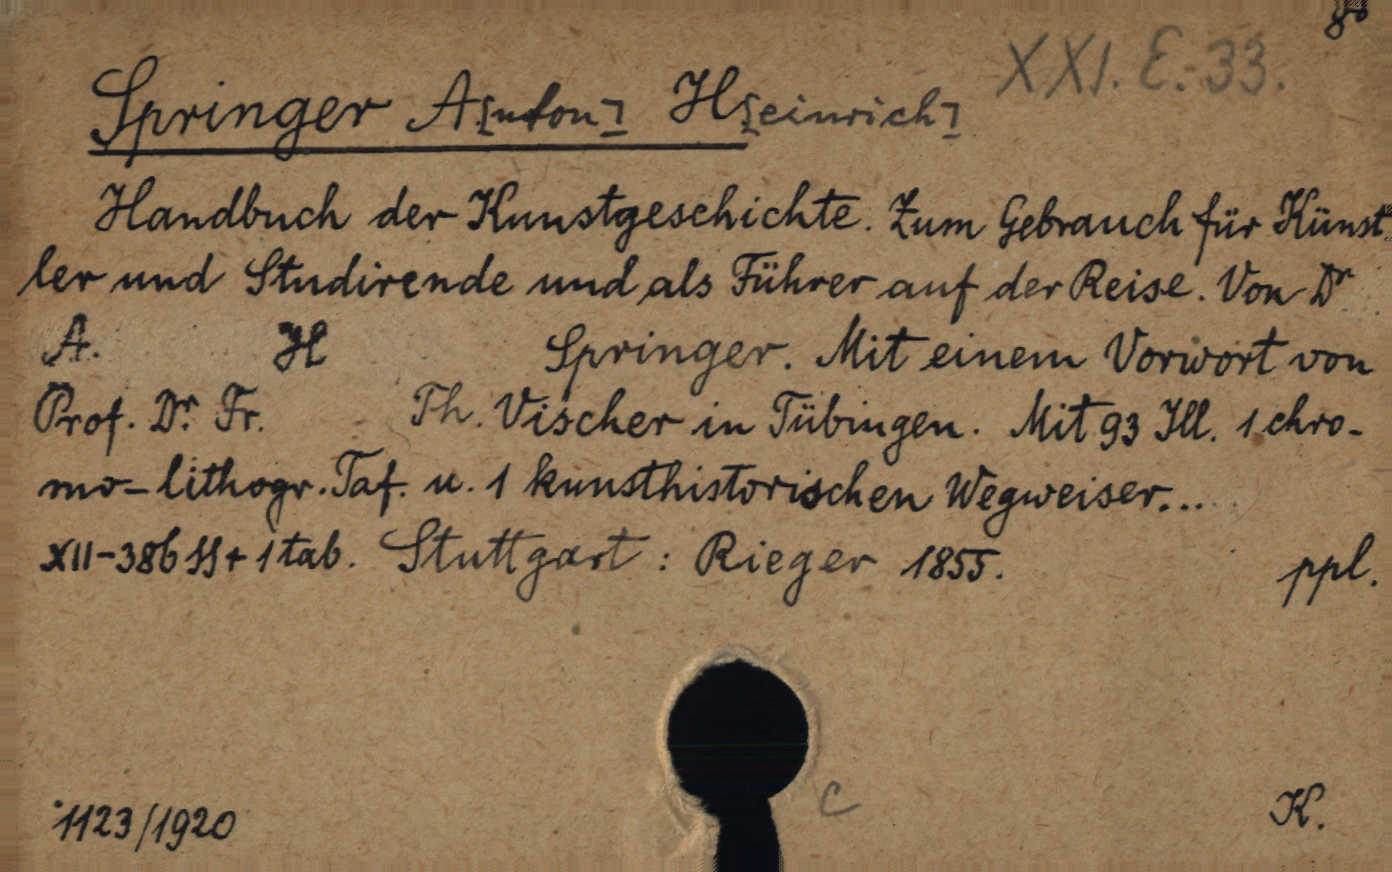 8°
XXI. E. 33.
Springer A[nton] H[einrich]
Handbuch der Kunstgeschichte. Zum Gebrauch für Künst-
ler und Studirende und als Führer auf der Reise. Von Dr
A. H Springer. Mit einem Vorwort von
Prof. Dr. Fr. Th. Vischer in Tübingen. Mit 93 Ill. 1 chro-
mo-lithogr. Taf. u. 1 kunsthistorischen Wegweiser...
XII-386 SS + 1 tab. Stuttgart : Rieger 1855. ppl.
C
1123/1920 K.